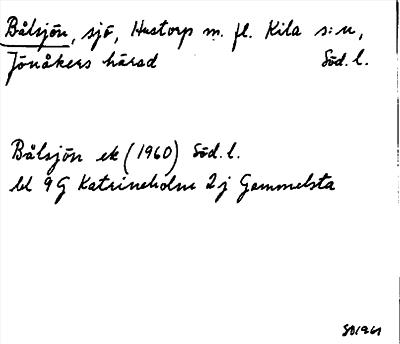 Bålsjön, sjö, Hustorp m. fl. Kila s:n,
Jönåkers härad Söd. l.
Bålsjön ek (1960) Söd. l.
bl 9G Katrineholm 2j Gammelsta